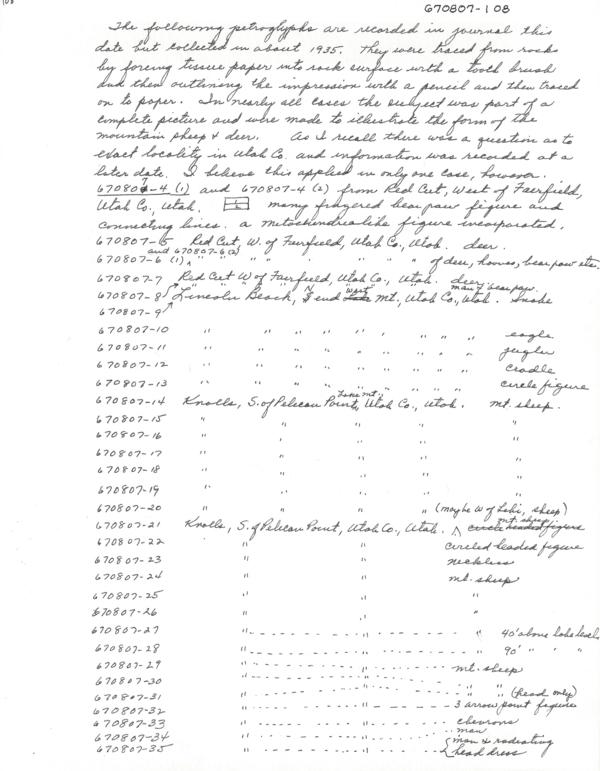 108
670807-108
The following petroglyphs are recorded in journal this
date but collected in about 1935. They were traced from rocks
by forcing tissue paper into rock surface with a tooth brush
and then outlining the impression with a pencil and then traced
on to paper. In nearly all cases the subject was part of a
complete picture and were made to illustrate the form of the
mountain sheep & deer. As I recall there was a question as to
exact locality in Utah Co. and information was recorded at a
later date. I believe this applied in only one case, however.
670807-4 (1) and 670807-4 (2) from Red Cut, West of Fairfield,
Utah Co., Utah. many fingered bear paw figure and
connecting lines. a mitochondrialike figure incorporated.
670807-5 Red Cut, W. of Fairfield, Utah Co., Utah. deer.
670807-6 (1) and 670807-6 (2) " " " " " " of deer, horns, bear paw etc.
670807-7 Red Cut W of Fairfield, Utah Co., Utah. deer
670807-8 Lincoln Beach, N end West Mt., Utah Co., Utah. man & bear paw. Snake
670807-9
670807-10 " " " " " " " " eagle
670807-11 " " " " " " " "
670807-12 " " " " " " " " cradle
670807-13 " " " " " " " " circle figure
670807-14 Knolls, S. of Pelican Point, Lake Mt., Utah Co., Utah. mt. sheep.
670807-15 " " " "
670807-16 " " " "
670807-17 " " " "
670807-18 " " " "
670807-19 " " " "
670807-20 " " " " (maybe W of Lehi, sheep)
670807-21 Knolls, S. of Pelican Point, Utah Co., Utah. mt. sheep circle headed figure
670807-22 " " circled headed figure
670807-23 " " neckless
670807-24 " " mt. sheep
670807-25 " " "
670807-26 " " "
670807-27 " " " 40' above lake level
670807-28 " " " 90' " "
670807-29 " " mt. sheep
670807-30 " " "
670807-31 " " " " (head only)
670807-32 " " 3 arrow point figures
670807-33 " " chevrons
670807-34 " " man
670807-35 " " man & radiating head dress